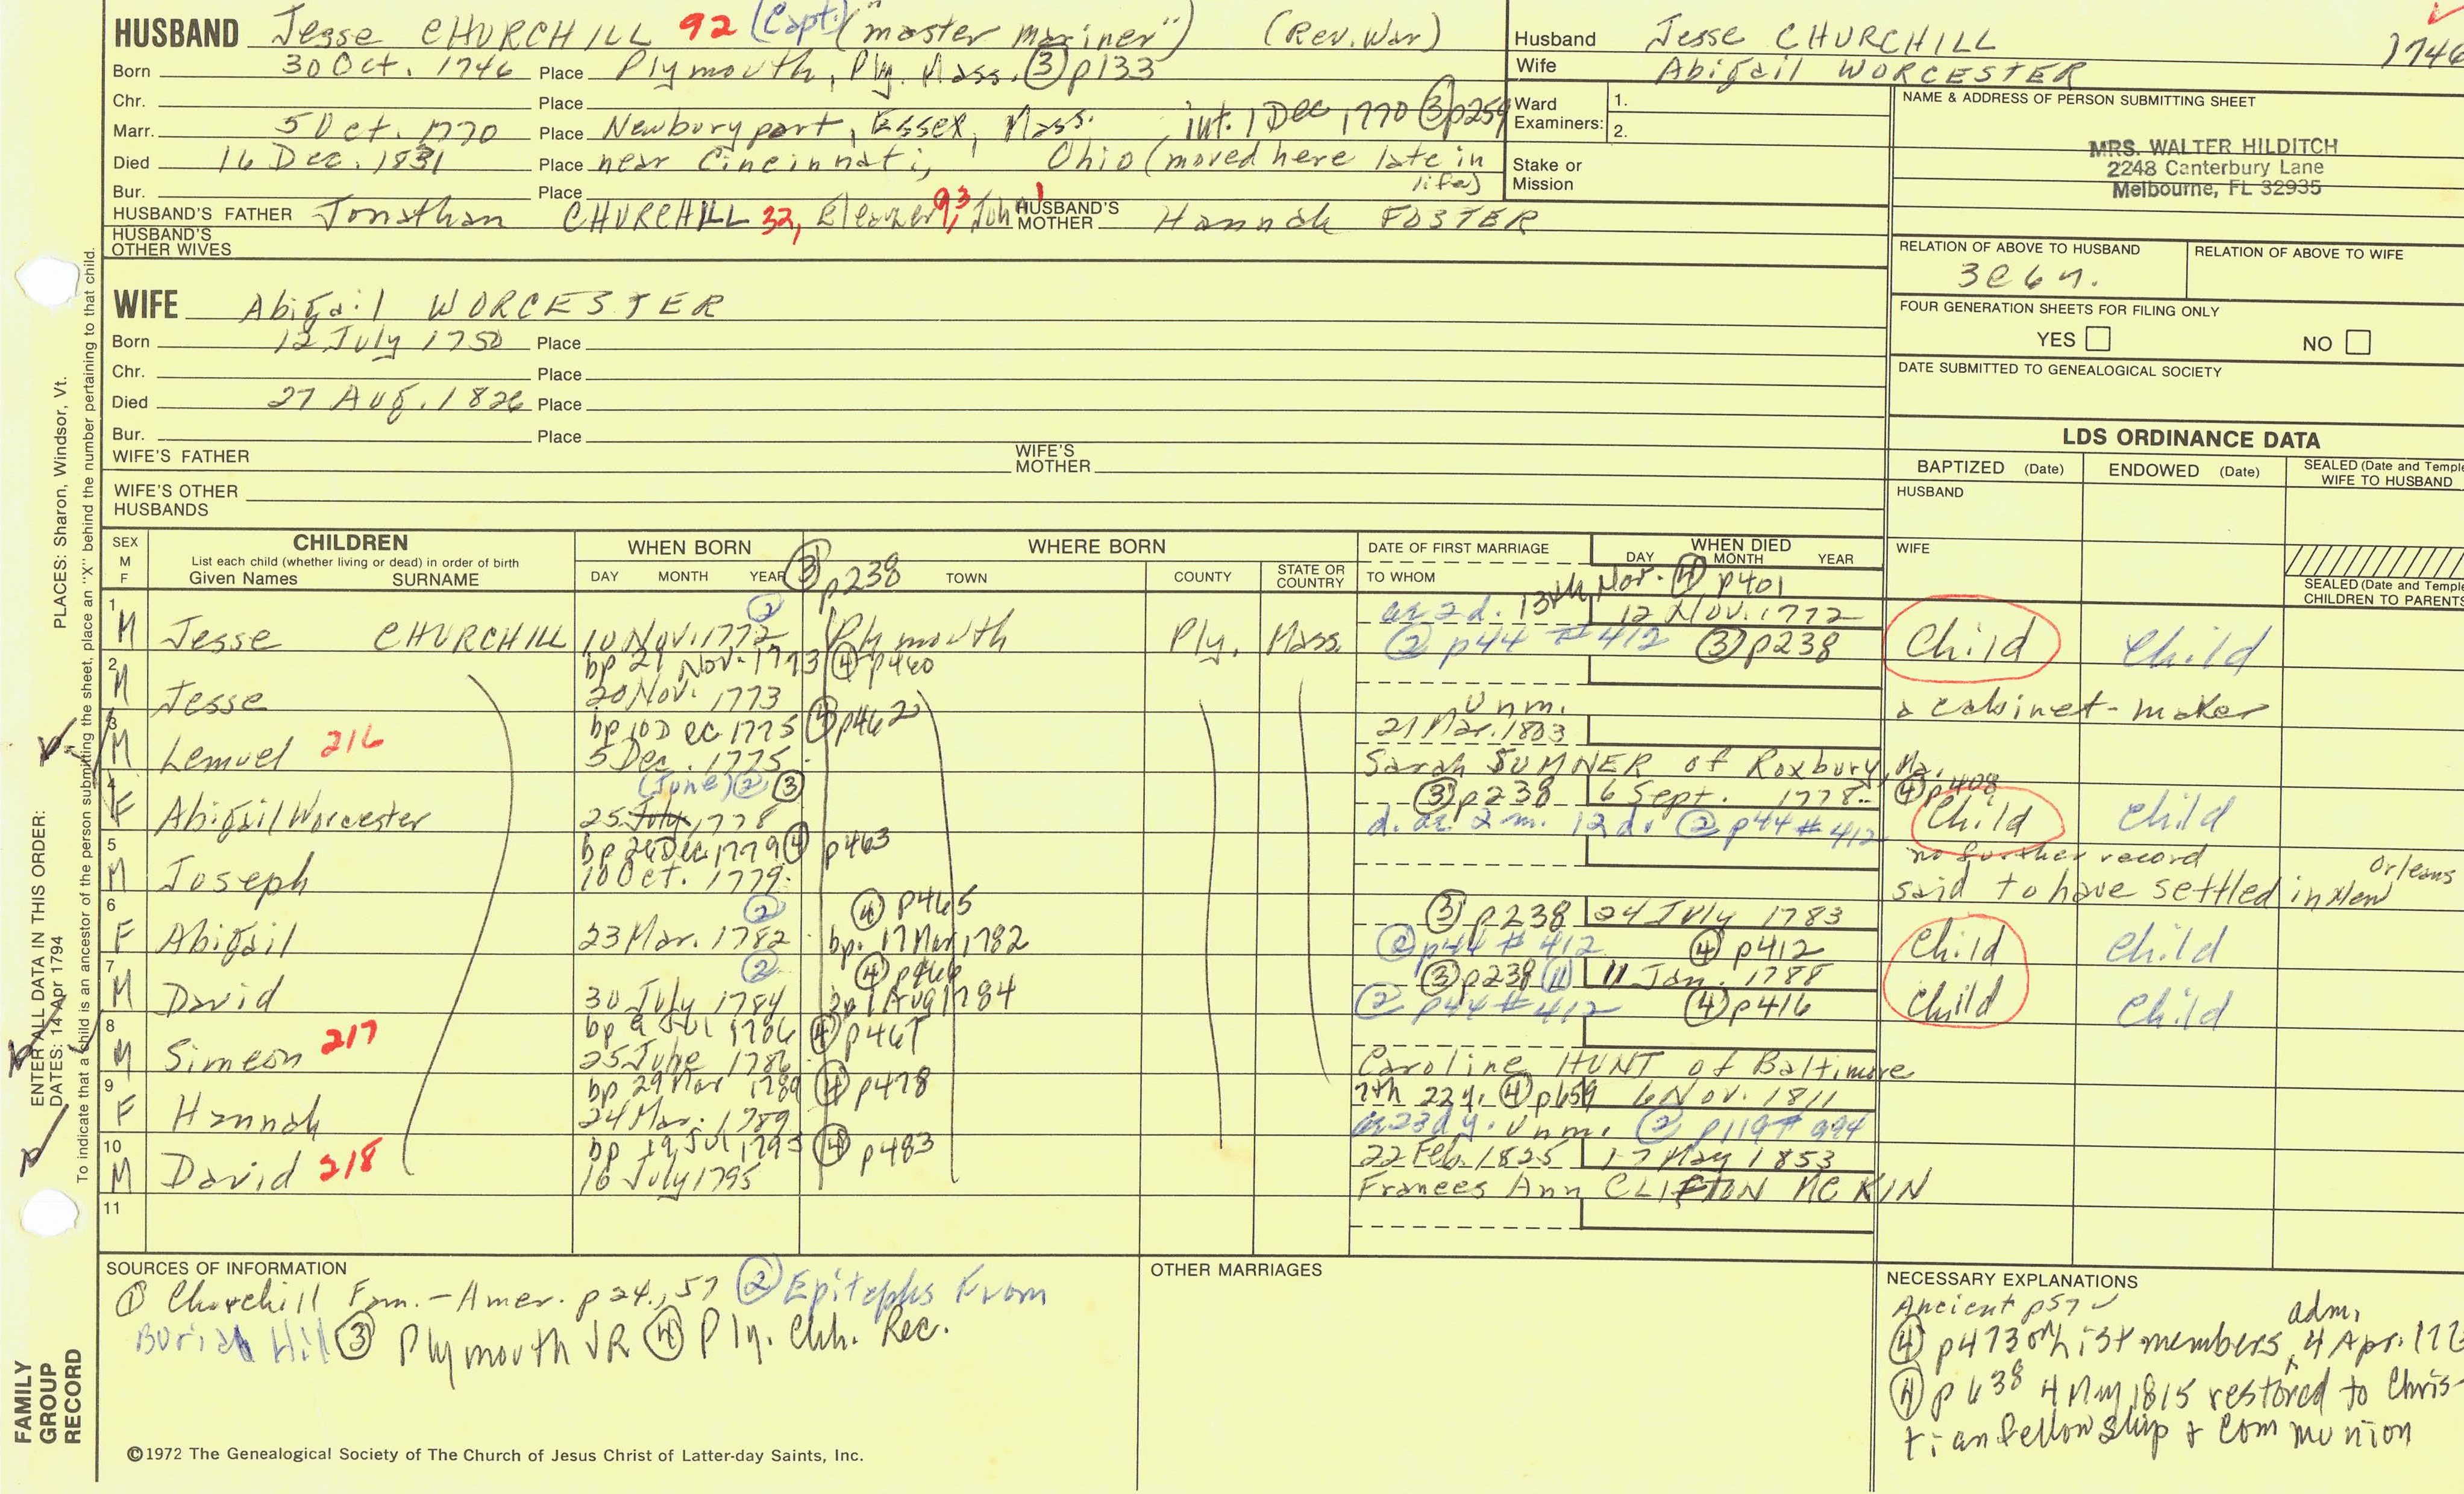 HUSBAND Jesse CHURCHILL 92 (Capt.) ("master mariner") (Rev. War)
Born 30 Oct. 1746 Place Plymouth, Ply. Mass. ③ p133
Chr. Place
Marr. 5 Oct. 1770 Place Newburyport, Essex, Mass. int. 1 Dec 1770 ③ p259
Died 16 Dec. 1831 Place near Cincinnati, Ohio (moved here late in life)
Bur. Place
HUSBAND'S FATHER Jonathan CHURCHILL 32, Eleazer 93, Joh 1 HUSBAND'S MOTHER Hannah FOSTER
HUSBAND'S OTHER WIVES
Husband Jesse CHURCHILL
1746
Wife Abigail WORCESTER
Ward Examiners: 1.
2.
Stake or Mission
NAME & ADDRESS OF PERSON SUBMITTING SHEET
MRS. WALTER HILDITCH
2248 Canterbury Lane
Melbourne, FL 32935
RELATION OF ABOVE TO HUSBAND RELATION OF ABOVE TO WIFE
3c6n.
FOUR GENERATION SHEETS FOR FILING ONLY
YES NO
DATE SUBMITTED TO GENEALOGICAL SOCIETY
WIFE Abigail WORCESTER
Born 12 July 1750 Place
Chr. Place
Died 27 Aug. 1826 Place
Bur. Place
WIFE'S FATHER WIFE'S MOTHER
WIFE'S OTHER HUSBANDS
LDS ORDINANCE DATA
BAPTIZED (Date) ENDOWED (Date) SEALED (Date and Temple
WIFE TO HUSBAND
HUSBAND
WIFE
SEALED (Date and Temple
CHILDREN TO PARENTS
SEX M F CHILDREN
List each child (whether living or dead) in order of birth
Given Names SURNAME
WHEN BORN
DAY MONTH YEAR
③ p238
WHERE BORN
TOWN COUNTY STATE OR COUNTRY
DATE OF FIRST MARRIAGE
TO WHOM
WHEN DIED
DAY MONTH YEAR
13th Nov. ④ p401
1 M Jesse CHURCHILL 10 Nov. 1772 ② Plymouth Ply. Mass. ae 2 d. 12 Nov. 1772
② p44 #412 ③ p238 Child Child
2 M Jesse bp 21 Nov. 1773 ④ p460
20 Nov. 1773 Unm. a cabinet-maker
3 M Lemuel 216 bp 10 Dec 1775 ④ p462
5 Dec. 1775 21 Mar. 1803
Sarah SUMNER of Roxbury, Ma.
4 F Abigail Worcester (June) ② ③
25 July 1778 ③ p238 6 Sept. 1778 ④ p408
d. ae. 2 m. 12 d. ② p44 #412 Child Child
5 M Joseph bp 26 Dec 1779 ④ p463
10 Oct. 1779 no further record
said to have settled in New Orleans
6 F Abigail 23 Mar. 1782 ② ④ p465
bp. 17 Mar 1782 ③ p238 24 July 1783
② p44 #412 ④ p412 Child Child
7 M David 30 July 1784 ② ④ p466
bp 1 Aug 1784 ③ p238 11 Jan. 1788
② p44 #412 ④ p416 Child Child
8 M Simeon 217 bp 9 Jul 1786 ④ p467
25 June 1786 Caroline HUNT of Baltimore
9 F Hannah bp 29 Mar 1789 ④ p478
24 Mar. 1789 7th 22 y. ④ p659 6 Nov. 1811
ae 23d y. Unm. ② p119 #994
10 M David 218 bp 19 Jul 1795 ④ p483
16 July 1795 22 Feb. 1825 17 May 1853
Frances Ann CLIFTON MCKIN
11
SOURCES OF INFORMATION
① Churchill Fam.-Amer. p 24, 57 ② Epitaphs From
Burial Hill ③ Plymouth VR ④ Ply. Chh. Rec.
OTHER MARRIAGES
NECESSARY EXPLANATIONS
Ancient p57
④ p473 on list members, adm. 4 Apr. 177
④ p638 4 May 1815 restored to Chris-
tian fellowship & Communion
©1972 The Genealogical Society of The Church of Jesus Christ of Latter-day Saints, Inc.
ENTER ALL DATA IN THIS ORDER:
DATES: 14 Apr 1794 PLACES: Sharon, Windsor, Vt.
To indicate that a child is an ancestor of the person submitting the sheet, place an "X" behind the number pertaining to that child.
FAMILY
GROUP
RECORD